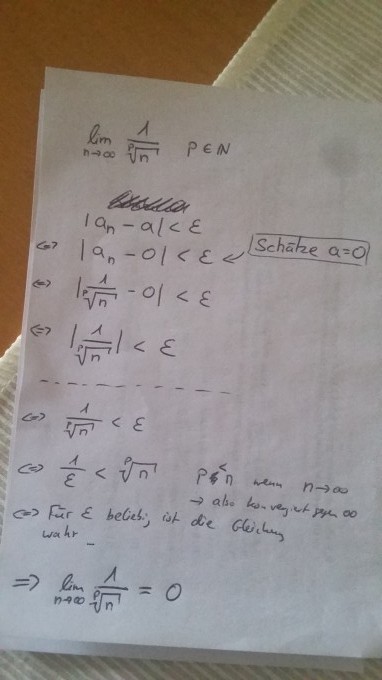 lim n→∞ 1/ᵖ√n p ∈ ℕ
|aₙ - a| < ε
⇔ |aₙ - 0| < ε ← Schätze a=0
⇔ |1/ᵖ√n - 0| < ε
⇔ |1/ᵖ√n| < ε
⇔ 1/ᵖ√n < ε
⇔ 1/ε < ᵖ√n p < n wenn n→∞
→ also konvergiert gegen ∞
⇔ Für ε beliebig ist die Gleichung
wahr
⇒ lim n→∞ 1/ᵖ√n = 0